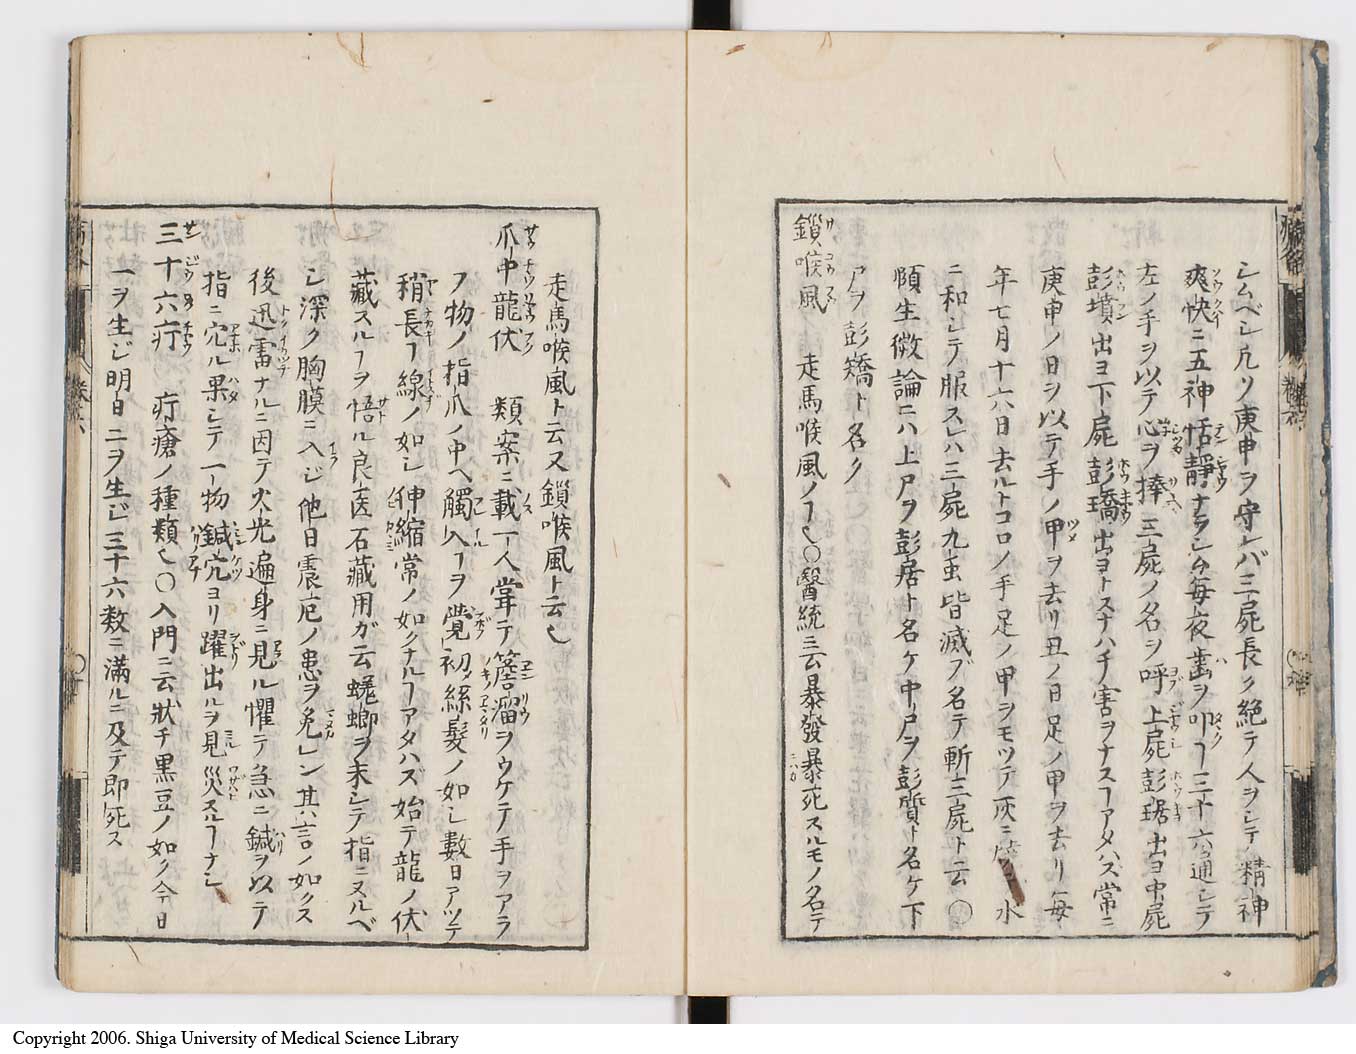 シムベシ凡ソ庚申ヲ守レバ三屍長ク絶テ人ヲシテ精神
爽快ニ五神恬靜ナラシム毎夜齒ヲ叩ヿ三十六通シテ
左ノ手ヲ以テ心ヲ捧三屍ノ名ヲ呼上屍彭琚出ヨ中屍
彭墳出ヨ下屍彭瑀出ヨトスナハチ害ヲナスヿアタハズ常ニ
庚申ノ日ヲ以テ手ノ甲ヲ去リ丑ノ日足ノ甲ヲ去リ毎
年七月十六日去ルトコロノ手足ノ甲ヲモツテ灰ニ水
ニ和シテ服スレハ三屍九虫皆滅ブ名テ斬三屍ト云〇
頤生微論ニハ上尸ヲ彭居ト名ケ中尸ヲ彭質ト名ケ下
尸ヲ彭矯ト名ク
鎖喉風 走馬喉風ノヿ也〇醫統ニ云暴發暴死スルモノ名テ
走馬喉風ト云又鎖喉風ト云也
爪中龍伏 類案ニ載一人甞テ簷溜ヲウケテ手ヲアラ
フ物ノ指爪ノ中ヘ觸入ヿヲ覺初メ絲髮ノ如シ數日アツテ
稍長ヿ線ノ如シ伸縮常ノ如クナルヿアタハズ始テ龍ノ伏
藏スルヿヲ悟ル良医石藏用ガ云蜣蜋ヲ末シテ指ニヌルベ
シ深ク胸膜ニ入ジ他日震厄ノ患ヲ免レン其言ノ如クス
後迅雷ナルニ因テ火光遍身ニ見ル懼テ急ニ鍼ヲ以テ
指ニ穴ル果シテ一物鍼穴ヨリ躍出ルヲ見災スルヿナシ
三十六疔 疔瘡ノ種類也〇入門ニ云狀チ黒豆ノ如ク今日
一ヲ生ジ明日二ヲ生ジ三十六数ニ滿ルニ及テ即死ス
Copyright 2006. Shiga University of Medical Science Library